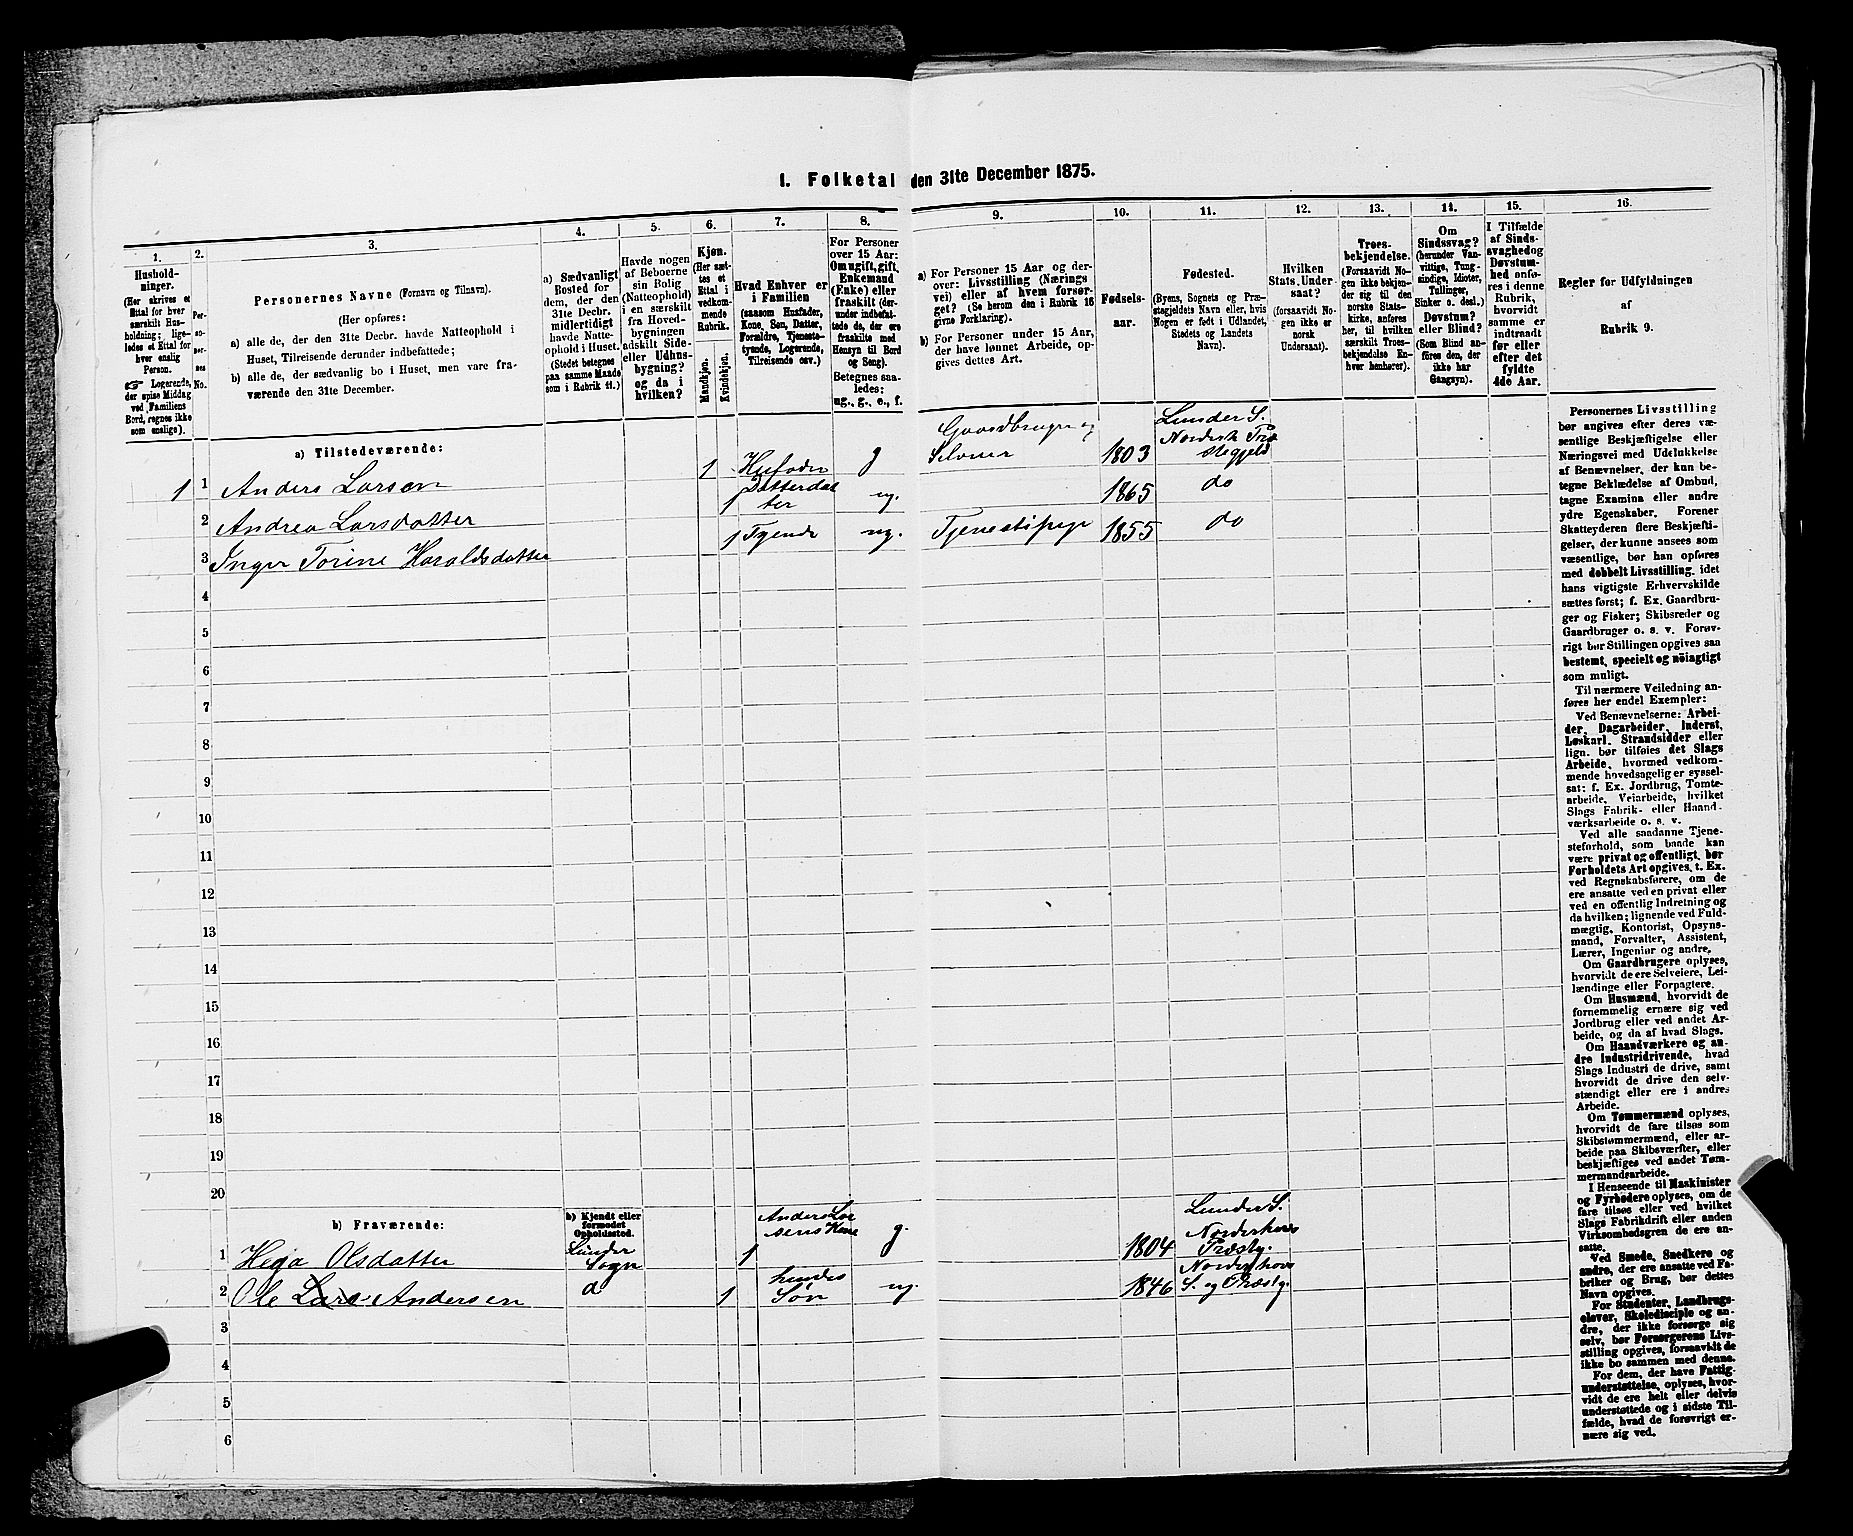 1. Folketal den 31te December 1875.
1.
Husholdninger.
(Her skrives et
Ettal for hver
særskilt Husholdning;
ligeledes et Ettal for
hver enslig
Person.
Logerende,
der spise Middag
ved Familiens
Bord, regnes ikke
som enslige).
2.
Personernes
No.
3.
Personernes Navne (Fornavn og Tilnavn).
(Her opføres:
a) alle de, der den 31te Decbr. havde Natteophold i
Huset, Tilreisende derunder indbefattede;
b) alle de, der sædvanlig bo i Huset, men vare fraværende
den 31te December.
4.
a) Sædvanligt
Bosted for
dem, der den
31te Decbr.
midlertidigt
havde Natteophold
i Huset.
(Stedet betegnes
paa samme Maade
som i Rubrik 11.)
5.
Havde nogen
af Beboerne
sin Bolig
(Natteophold)
i en særskilt
fra Hovedbygningen
adskilt Side-
eller Udhusbygning?
og da i
hvilken?
6.
Kjøn.
(Her sættes
et
Ettal i
vedkommende
Rubrik.
Mandkjøn.
Kvindekjøn.
7.
Hvad Enhver er
i Familien
(saasom Husfader,
Kone, Søn, Datter,
Forældre, Tjenestetyende,
Logerende,
Tilreisende osv.)
8.
For Personer
over 15 Aar:
Om ugift, gift,
Enkemand
(Enke) eller
fraskilt (derunder
indbefattede
de, der ere
fraskilte med
Hensyn til Bord
og Seng).
Betegnes saaledes:
ug., g., e., f.
9.
a) For Personer 15 Aar og derover:
Livsstilling (Næringsvei)
eller af hvem forsørget?
(Se herom den i Rubrik 16
givne Forklaring).
b) For Personer under 15 Aar,
der have lønnet Arbeide, opgives
dettes Art.
10.
Fødselsaar.
11.
Fødested.
(Byens, Sognets og Præstegjeldets
Navn eller, hvis
Nogen er født i Udlandet,
Stedets og Landets
Navn).
12.
Hvilken
Stats Undersaat?
(forsaavidt Nogen
ikke er
norsk
Undersaat).
13.
Troesbekjendelse.
(Forsaavidt Nogen
ikke bekjender
sig til den
norske Statskirke,
anføres
her, til hvilken
særskilt Troesbekjendelse
Enhver
henhører).
14.
Om
Sindssvag?
(herunder Vanvittige,
Tungsindige,
Idioter,
Tullinger,
Sinker o. desl.)
Døvstum?
eller Blind?
(Som Blind anføres
den, der
ikke har
Gangsyn).
15.
I Tilfælde
af Sindssvaghed
og
Døvstumhed
anføres
i denne
Rubrik,
hvorvidt
samme er
indtraadt
før eller
efter det
fyldte
4de Aar.
16.
Regler for Udfyldningen
af
Rubrik 9.
a) Tilstedeværende:
1 1 Anders Larsen 1 Husfader g Gaardbruger og Selveier 1803 Lunder S. Norderh. Præstegjeld
2 Andrea Larsdatter 1 Datterdatter ug. 1865 do
3 Inger Torine Haroldsdatter 1 Tyende ug. Tjenestipige 1855 do
4
5
6
7
8
9
10
11
12
13
14
15
16
17
18
19
20
b) Fraværende:
b) Kjendt eller
formodet
Opholdssted.
1 Hega Olsdatter Lunder Sogn 1 Anders Larsens Kone g. 1804 Lunder S. Norderhovs Præstg.
2 Ole Lars Andersen d 1 hendes Søn ug. 1846 Norderhovs S. og Præstg.
3
4
5
6
Personernes Livsstilling
bør angives efter deres væsentlige
Beskjæftigelse eller
Næringsvei med Udelukkelse
af Benævnelser, der kun betegne
Beklædelse af Ombud,
tagne Examina eller andre
ydre Egenskaber. Forener
Skatteyderen flere Beskjæftigelser,
der kunne ansees som
væsentlige, bør han opføres
med dobbelt Livsstilling, idet
hans vigtigste Erhvervskilde
sættes først; f. Ex. Gaardbruger
og Fisker; Skibsreder og
Gaardbruger o. s. v. Forøvrigt
bør Stillingen opgives saa
bestemt, specielt og nöiagtigt
som muligt.
Til nærmere Veiledning anføres
her endel Exempler:
Ved Benævnelserne: Arbeider,
Dagarbeider, Inderst,
Løskarl, Strandsidder eller
lign. bør tilføies det Slags
Arbeide, hvormed vedkommende
hovedsagelig er sysselsat:
f. Ex. Jordbrug, Tomtearbeide,
Veiarbeide, hvilket
Slags Fabrik- eller Haandværksarbeide
o. s. v.
Ved alle saadanne Tjenesteforhold,
som baade kan
være privat og offentligt, bør
Forholdets Art opgives, t. Ex.
ved Regnskabsførere, om de
ere ansatte ved en privat eller
ved en offentlig Indretning og
da hvilken; lignende ved Fuldmægtig,
Kontorist, Opsynsmand,
Forvalter, Assistent,
Lærer, Ingeniør og andre.
Om Gaardbrugere oplyses,
hvorvidt de ere Selveiere, Leilændinge
eller Forpagtere.
Om Husmænd, hvorvidt de
fornemmelig ernære sig ved
Jordbrug eller ved andet Arbeide,
og da af hvad Slags.
Om Haandværkere og andre
Industridrivende, hvad
Slags Industri de drive, samt
hvorvidt de drive den selvstændigt
eller ere i andres
Arbeide.
Om Tømmermænd oplyses,
hvorvidt de fare tilsøs som
Skibstømmermænd, eller arbeide
paa Skibsværfter, eller
beskjæftiges ved andet Tømmermandsarbeide.
I Henseende til Maskinister
og Fyrbødere oplyses, om de
fare tilsøs eller ved hvilket
Slags Fabrikdrift eller anden
Virksomhedsgren de ere ansatte.
Ved Smede, Snedkere og
andre, der ere ansatte ved Fabriker
og Brug, bør dettes
Navn opgives.
For Studenter, Landbrugselever,
Skoledisciple og andre,
der ikke forsørge sig
selv, bør Forsørgerens Livsstilling
opgives, forsaavidt de
ikke bo sammen med denne.
For dem, der have Fattigunderstøttelse,
oplyses, hvorvidt
de ere helt eller delvis
understøttede og i sidste Tilfælde,
hvad de forøvrigt ernære
sig ved.